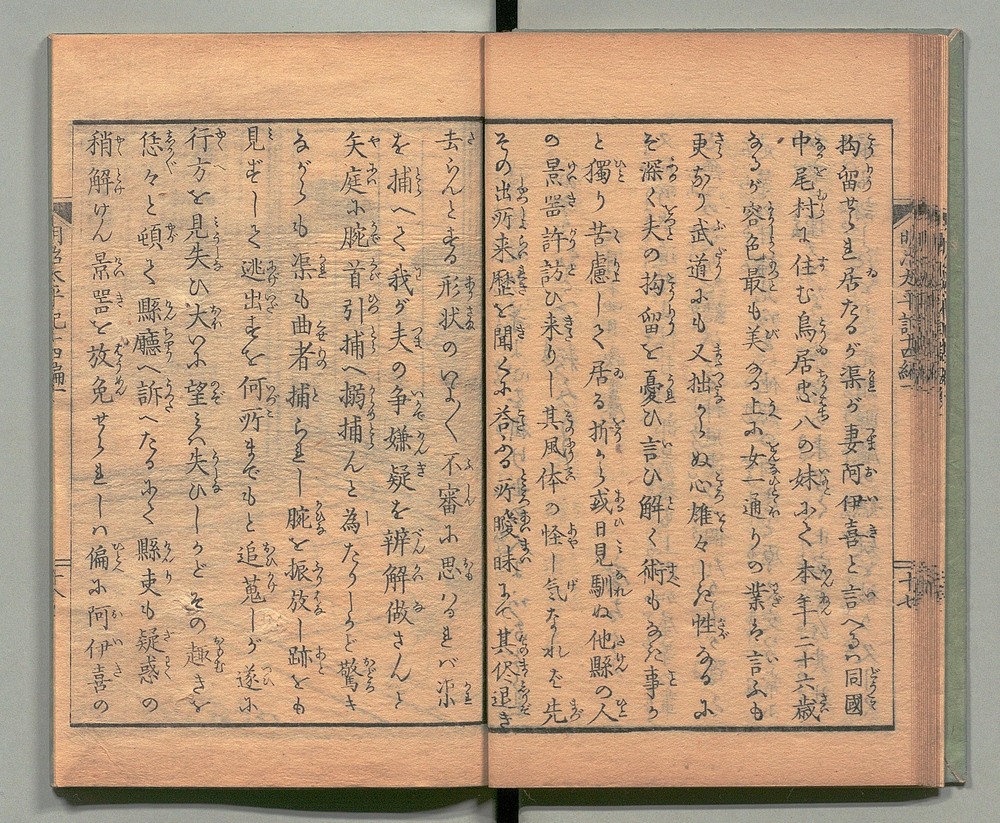 拘留せられ居たるが渠が妻阿伊喜と言へるハ同國
中尾村に住む鳥居忠八の妹にて本年二十六歳
なるが容色最も美なる上に女一通りの業ハ言ふも
更なり武道にも又拙からぬ心雄々しき性なるに
ぞ深く夫の拘留を憂ひ言ひ解く術もなき事か
と獨り苦慮して居る折から或日見馴ぬ他縣の人
の景器許訪ひ来りし其風体の怪し気なれバ先
その出所来歴を聞くに答ふる所曖昧にて其侭退き
去らんとする形状のいよ〱不審に思ハるれバ渠
を捕へて我が夫の争嫌疑を辨解做さんと
矢庭に腕首引捕へ搦捕んと為たりしかど驚き
ながらも渠も曲者捕られし腕を振放し跡をも
見ずして逃出すを何所までもと追蒐しが遂に
行方を見失ひ大いに望ミハ失ひしかどその趣きを
恁々と頓て縣廳へ訴へたるにて縣吏も疑惑の
稍解けん景器を放免せられしハ偏に阿伊喜の